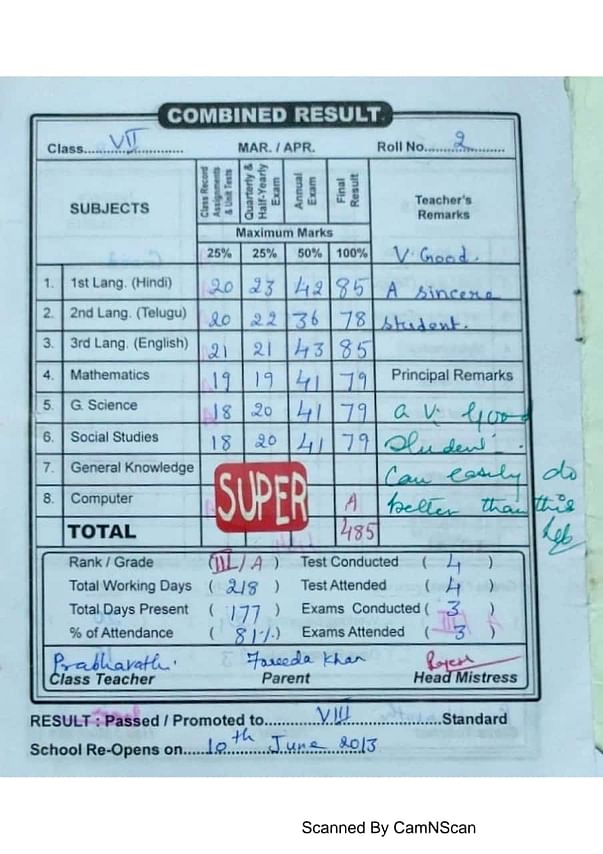 COMBINED RESULT
Class.....VII..... MAR. / APR. Roll No.....2.....
SUBJECTS
Class Record Assignments & Unit Tests
Quarterly & Half-Yearly Exam
Annual Exam
Final Result
Teacher's Remarks
Maximum Marks
25% 25% 50% 100% V. Good.
1. 1st Lang. (Hindi) 20 23 42 85 A sincere
2. 2nd Lang. (Telugu) 20 22 36 78 student.
3. 3rd Lang. (English) 21 21 43 85
4. Mathematics 19 19 41 79 Principal Remarks
5. G. Science 18 20 41 79 a V. Good
6. Social Studies 18 20 41 79 student.
7. General Knowledge Can easily do
SUPER
8. Computer A better than this
TOTAL 485
Rank / Grade (III/A) Test Conducted ( 4 )
Total Working Days ( 218 ) Test Attended ( 4 )
Total Days Present ( 177 ) Exams Conducted ( 3 )
% of Attendance ( 81%.) Exams Attended ( 3 )
Prabhavathi. Fareeda Khan
Class Teacher Parent Head Mistress
RESULT : Passed / Promoted to.....VIII.....Standard
School Re-Opens on.....10th June 2013
Scanned By CamNScan